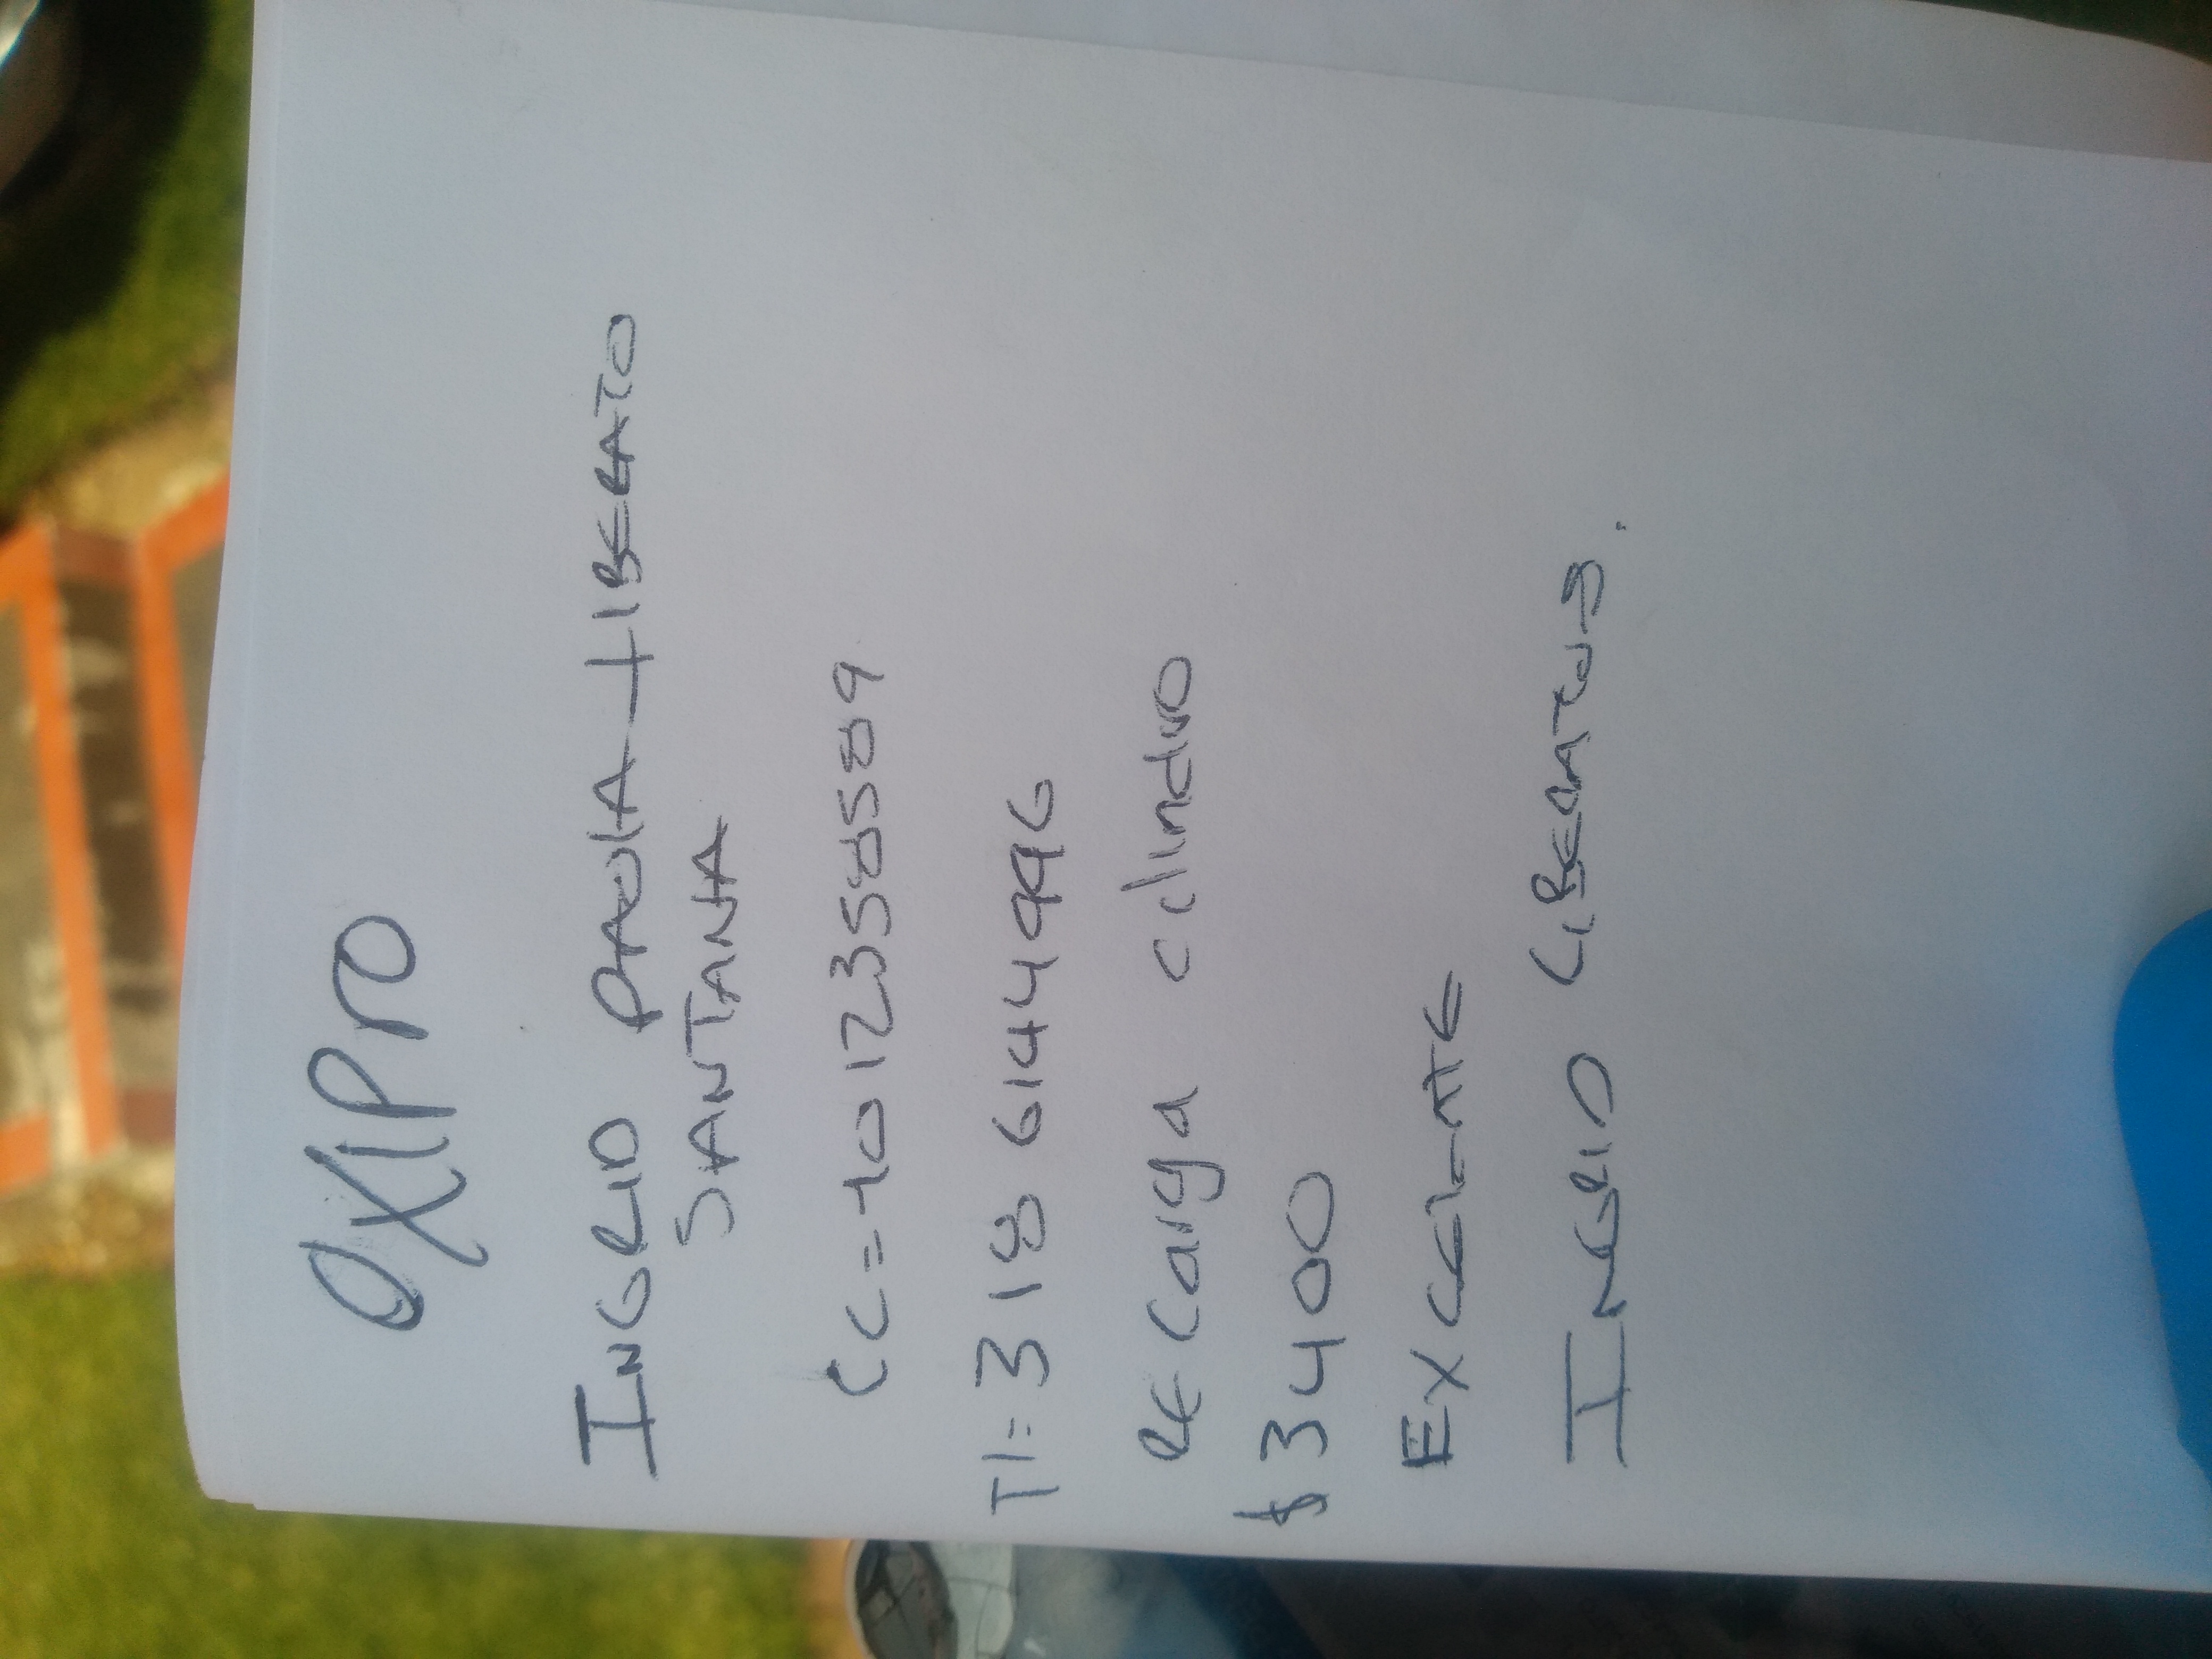 OXIPro
INGRID PAOLA LIBERATO
SANTANA
CC=4012358589
Tl=318 6144996
RECarga cilindro
$3400
EXCELENTE
INGRID LIBERATO S.